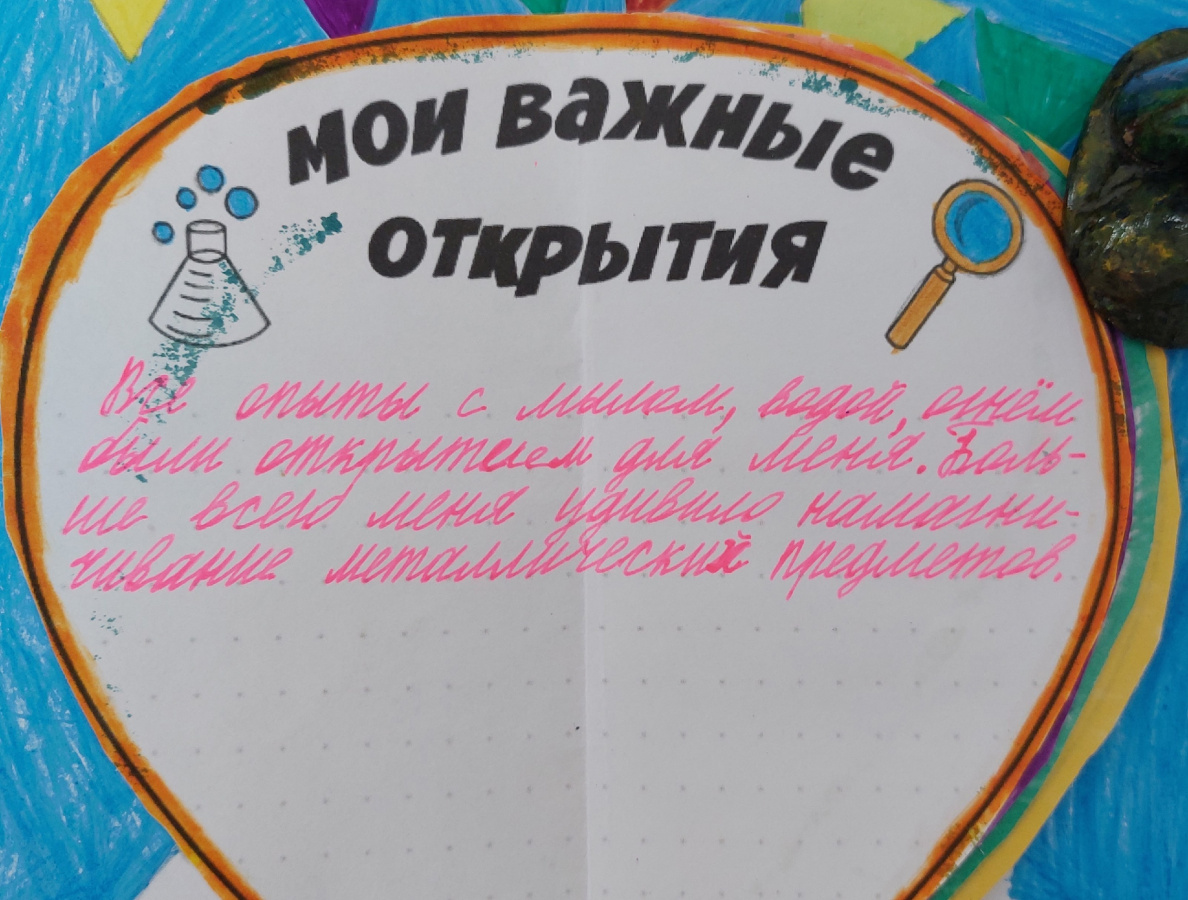 мои важные
открытия
Все опыты с мылом, водой, огнём
были открытием для меня. Боль-
ше всего меня удивило намагни-
чивание металлических предметов.